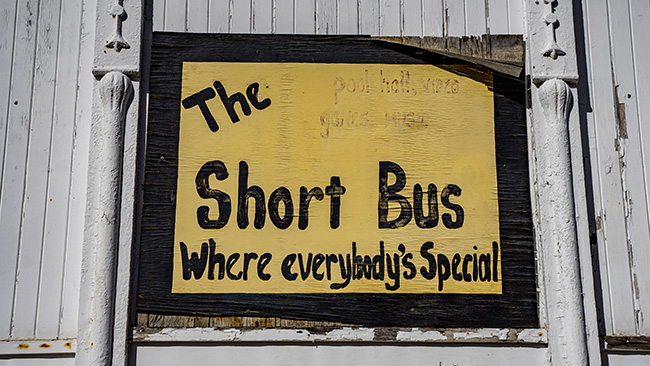 The
pool hall, video
games
Short Bus
Where everybody's Special